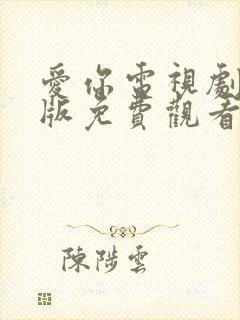 愛你電視劇
版免費觀看
陳陟雲